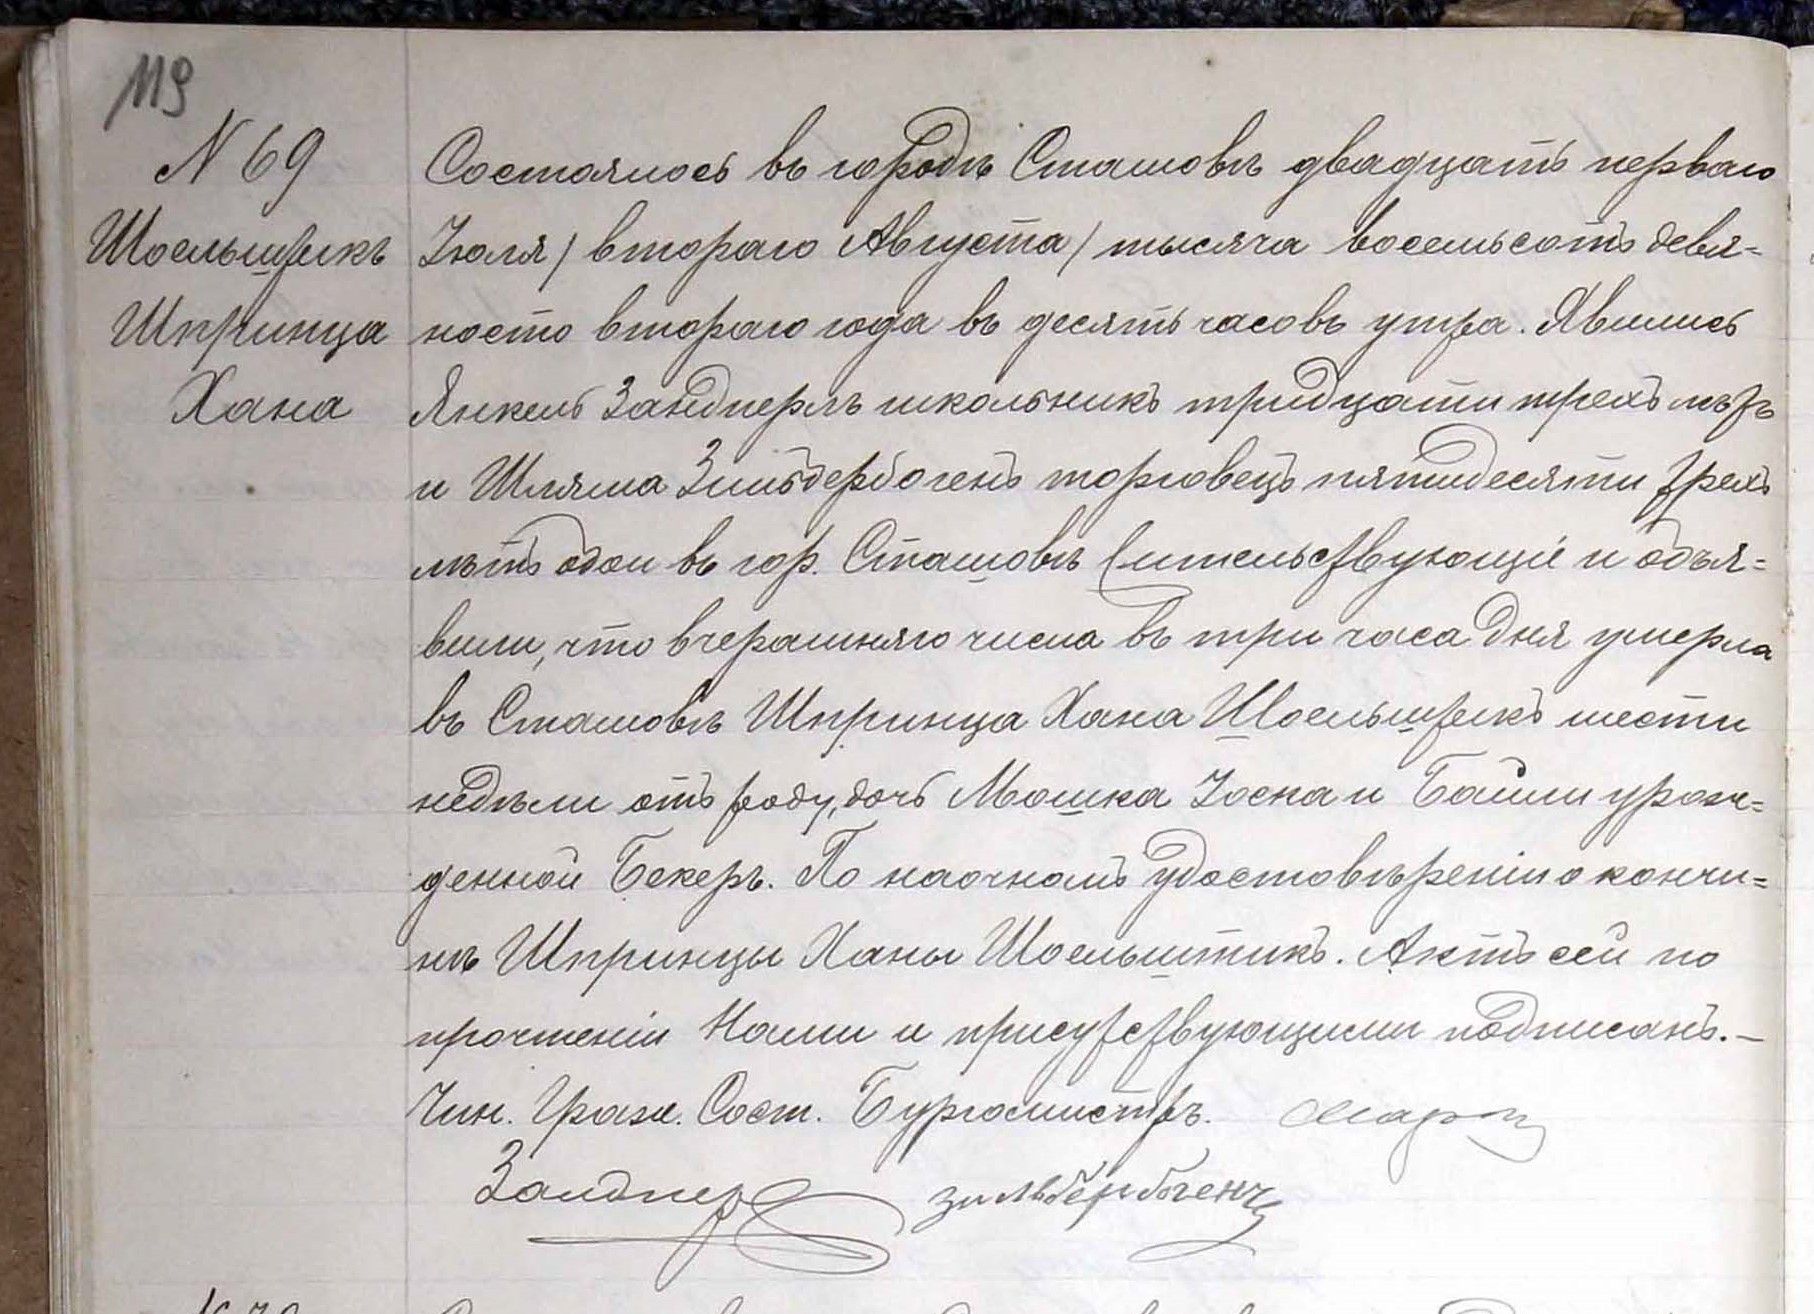 119
N 69
Шоельштикъ
Шпринца
Хана
Состоялось въ городѣ Сташовѣ двадцать перваго
Іюля / втораго Августа / тысяча восемьсотъ девя=
носто втораго года въ десять часовъ утра. Явились
Янкель Зандперль школьникъ тридцати трехъ лѣтъ
и Шляма Зильбербогенъ торговецъ пятидесяти трехъ
лѣтъ обои въ гор. Сташовѣ жительствующіе и объя=
вили, что вчерашняго числа въ три часа дня умерла
въ Сташовѣ Шпринца Хана Шоельштикъ шести
недѣли отъ роду, дочь Мошка Іоска и Байли урож=
денной Бекеръ. По наочномъ удостовѣреніи о кончи=
нѣ Шпринцы Ханы Шоельштикъ. Актъ сей по
прочтеніи Нами и присутствующими подписанъ.—
Чин. Гражд. Сост. Бургомистръ.
Зандпер
Зильбербогенъ